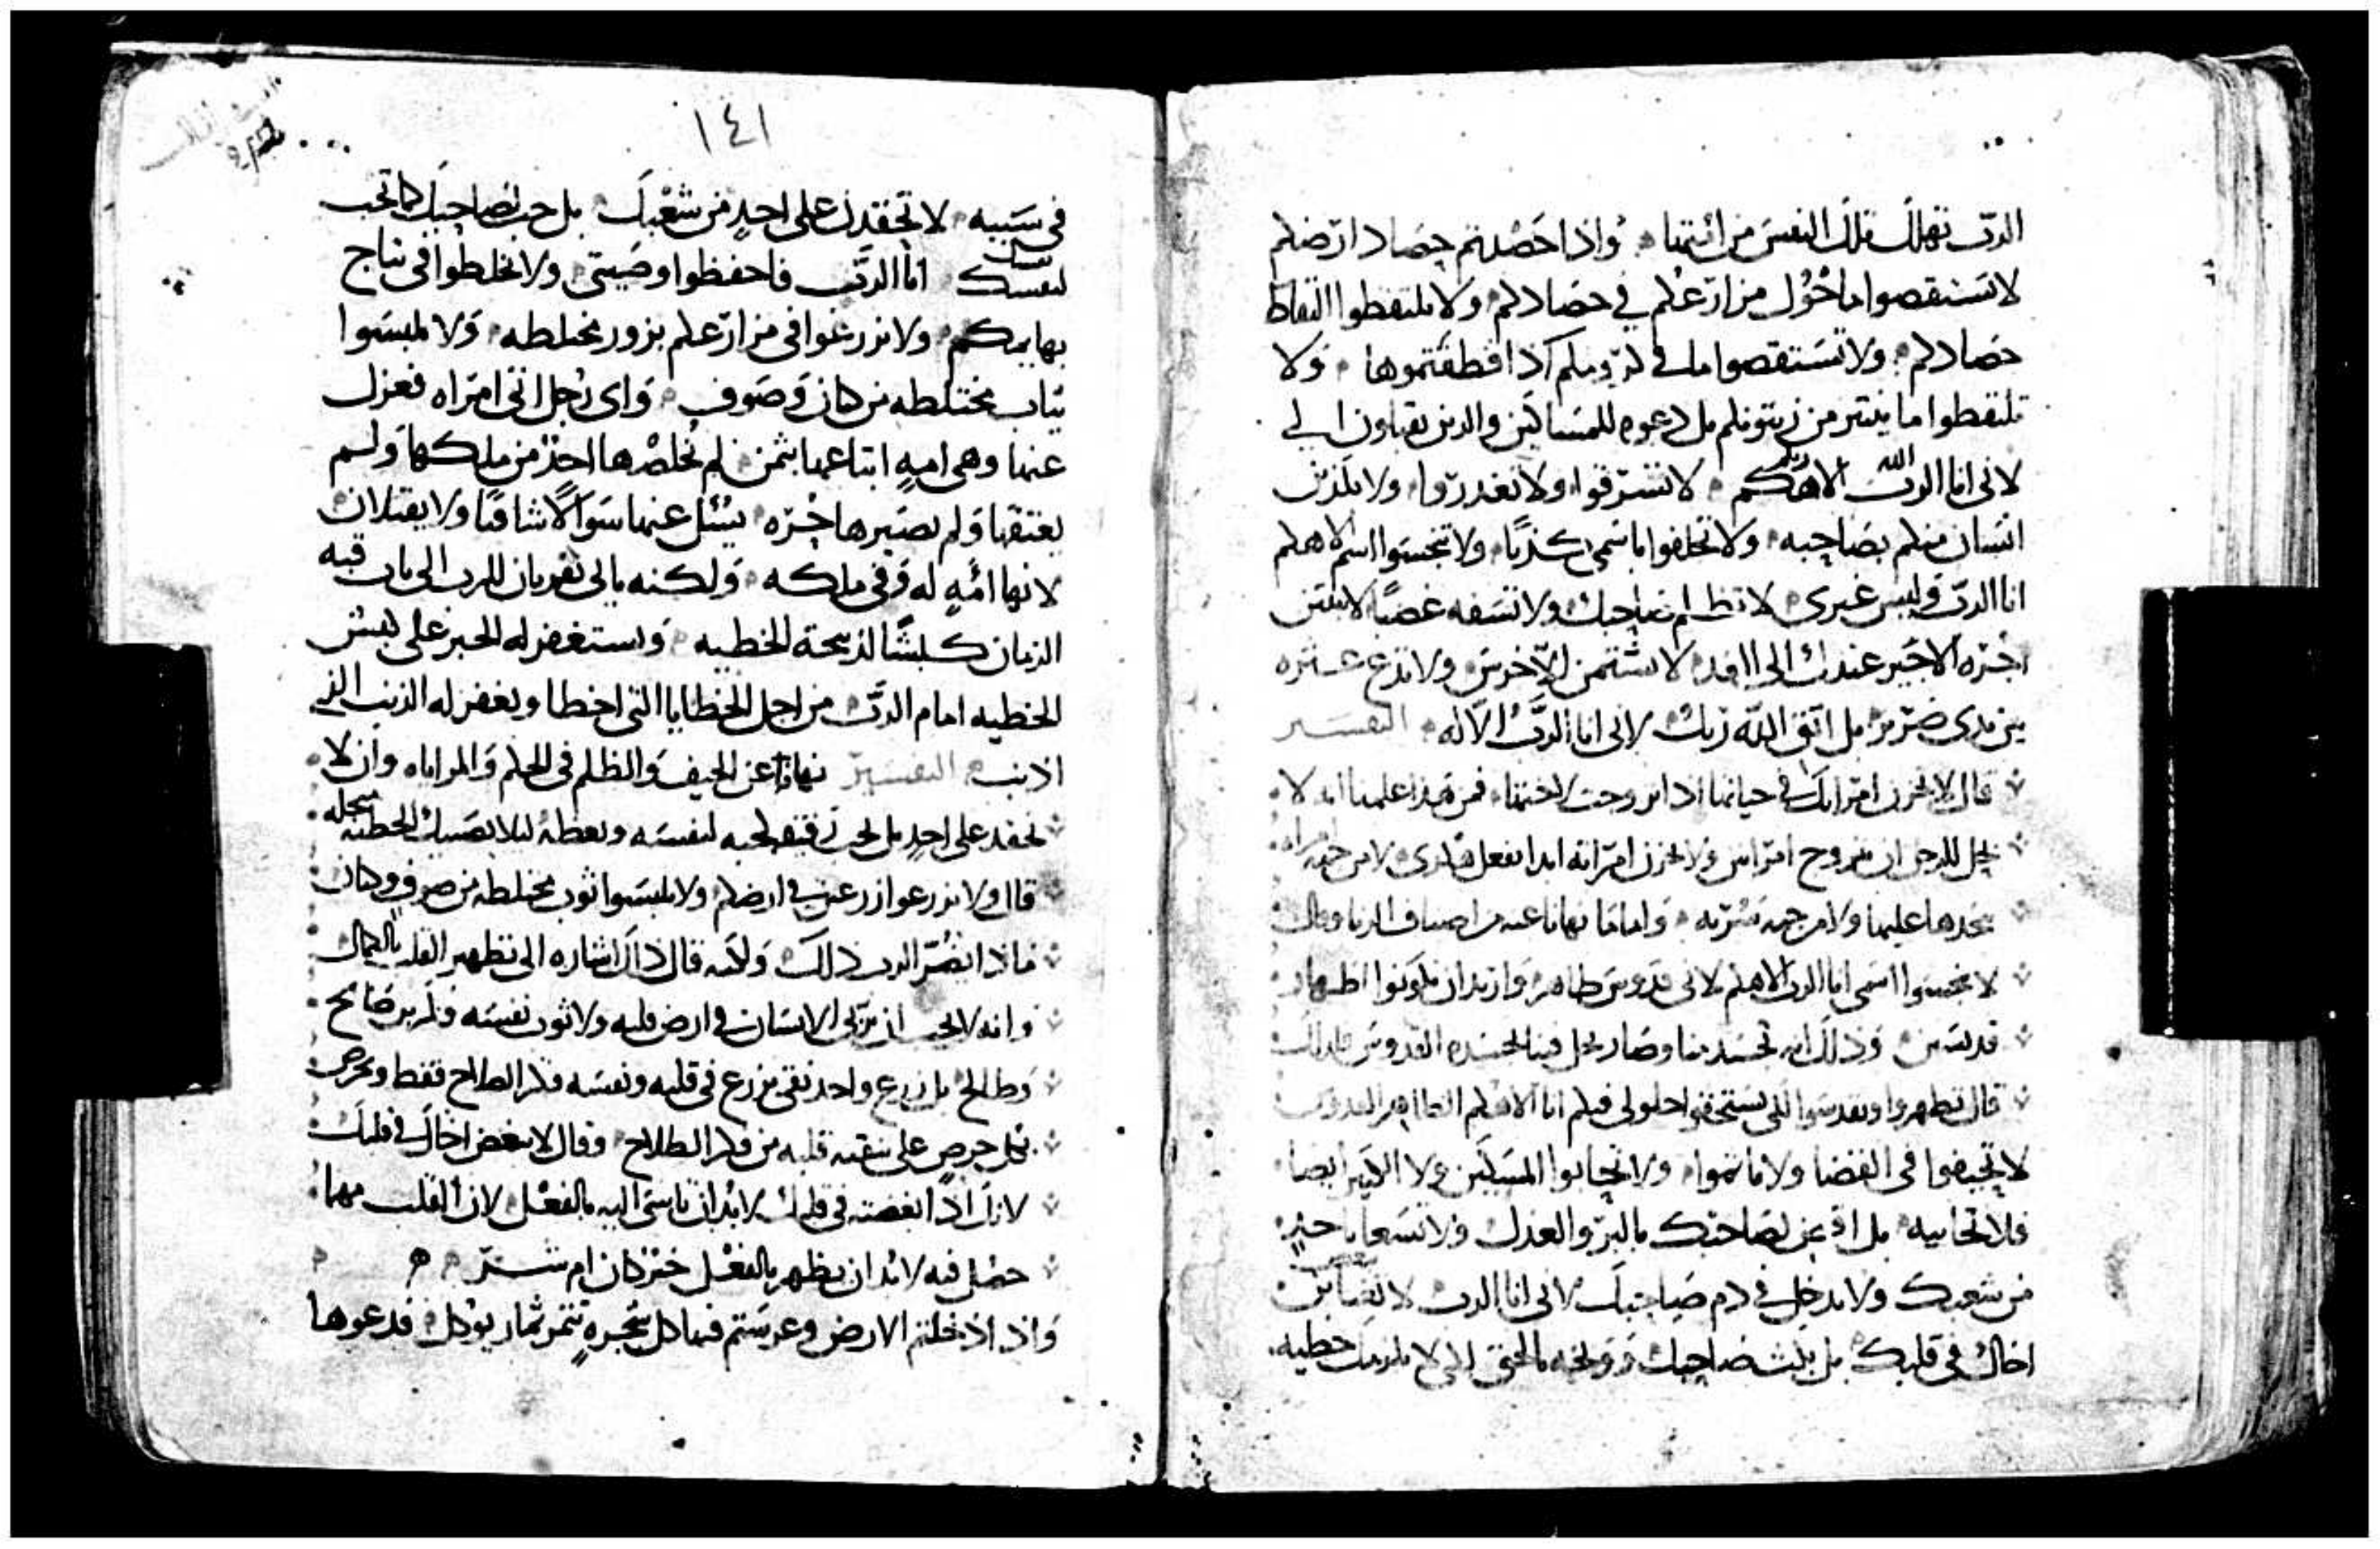 الرب تهلك تلك النفس من امتها واذا حصدتم حصاد ارضكم
لا تستقصوا ماحول مزارعكم في حصادكم ولا تلتقطوا التقاط
حصادكم ولا تستقصوا ما في كرومكم اذا قطفتموها ولا
تلتقطوا ما ينتثر من زيتونكم بل دعوه للمساكين والذين يقبلون الي
لاني انا الرب الاهكم لا تسرقوا ولا تغدروا ولا يكذبن
انسان منكم بصاحبه ولا تحلفوا باسمي كذبا ولا تنجسوا اسم الاهكم
انا الرب وليس غيري لا تظلم صاحبك ولا تسفه غصبا لا يبيتن
اجره الاجير عندك الى الغد لا تشتمن الاخرس ولا تدع عثره
بين يدي ضرير بل اتق الله ربك لاني انا الرب الاله التفسير
قال لا تحزن امراتك في حياتها اذا تزوجت لاختها فمن هذا علمنا انه لا
يحل للرجل ان يتزوج امراتين ولا يحزن امراته ابدا بفعل من جهه امراه
يتخذها عليها ولا من جهه سريه
لا تنجسوا اسمي انا الرب الاهكم لاني قدوس طاهر واريد ان تكونوا اطهار
قديسين وذلك انه تجسد منا وصار يحل فينا بجسده القدوس فلذلك
قال تطهروا وتقدسوا لكي تستحقوا حلولي فيكم انا الاهكم الطاهر القدوس
لا تحيفوا في القضا ولا تاثموا ولا تحابوا المسكين ولا الكبير ايضا
فلا تحابيه بل اقض لصاحبك بالبر والعدل ولا تسعا
من شعبك ولا تدخل في دم صاحبك لاني انا الرب لا تبغضن
اخاك في قلبك بل بكت صاحبك ووبخه بالحق لكي لا يلزمك خطيه
١٤١
في سببه لا تحقدن على احد من شعبك بل حب لصاحبك كما تحب
لنفسك انا الرب فاحفظوا وصيتي ولا تخلطوا في نتاج
بهايمكم ولا تزرعوا في مزارعكم بزور مختلطه ولا تلبسوا
ثياب مختلطه من كتان وصوف واي رجل اتى امراه فعزل
عنها وهي اميه ابتاعها بثمن لم يخلصها احد من ملكها ولم
يعتقها ولم يصيرها حره يسئل عنها سوالا شافيا ولا يقتلان
لانها امه له وفي ملكه ولكنه ياتي بقربان للرب الى باب قبه
الزمان كبشا لذبيحة الخطيه ويستغفر له الحبر على كبش
الخطيه امام الرب من اجل الخطايا التي اخطا ويغفر له الذنب الذي
اذنب التفسير نهانا عن الحيف والظلم في الحكم والمراياه وان لا
نحقد على احد بل نحب رفيقه كحبه لنفسه ونعظه ليلا يصيبك الخطيه
قال ولا تزرعوا زرعين في ارضكم ولا تلبسوا ثوب مختلطه من صوف وكتان
ماذا يضر الرب ذلك ولكنه قال ذاك اشاره الى تطهير القلب بالكمال
وانه لا يحب ان يزرع الانسان في ارض قلبه ولا ثوب نفسه فكرين صالح
وطالح بل زرع واحد نقي يزرع في قلبه ونفسه فكر الصالح فقط ويحرص
بكل حرص على تنقيه قلبه من فكر الطلاح وقال لا تبغض اخاك في قلبك
لانك اذا ابغضته في قلبك لابد ان تاسى اليه بالفعل لان القلب مهما
حصل فيه لابد ان يظهر بالفعل خير كان ام شر
واذا دخلتم الارض وغرستم فيها كل شجره تثمر ثمار يوكل فدعوها